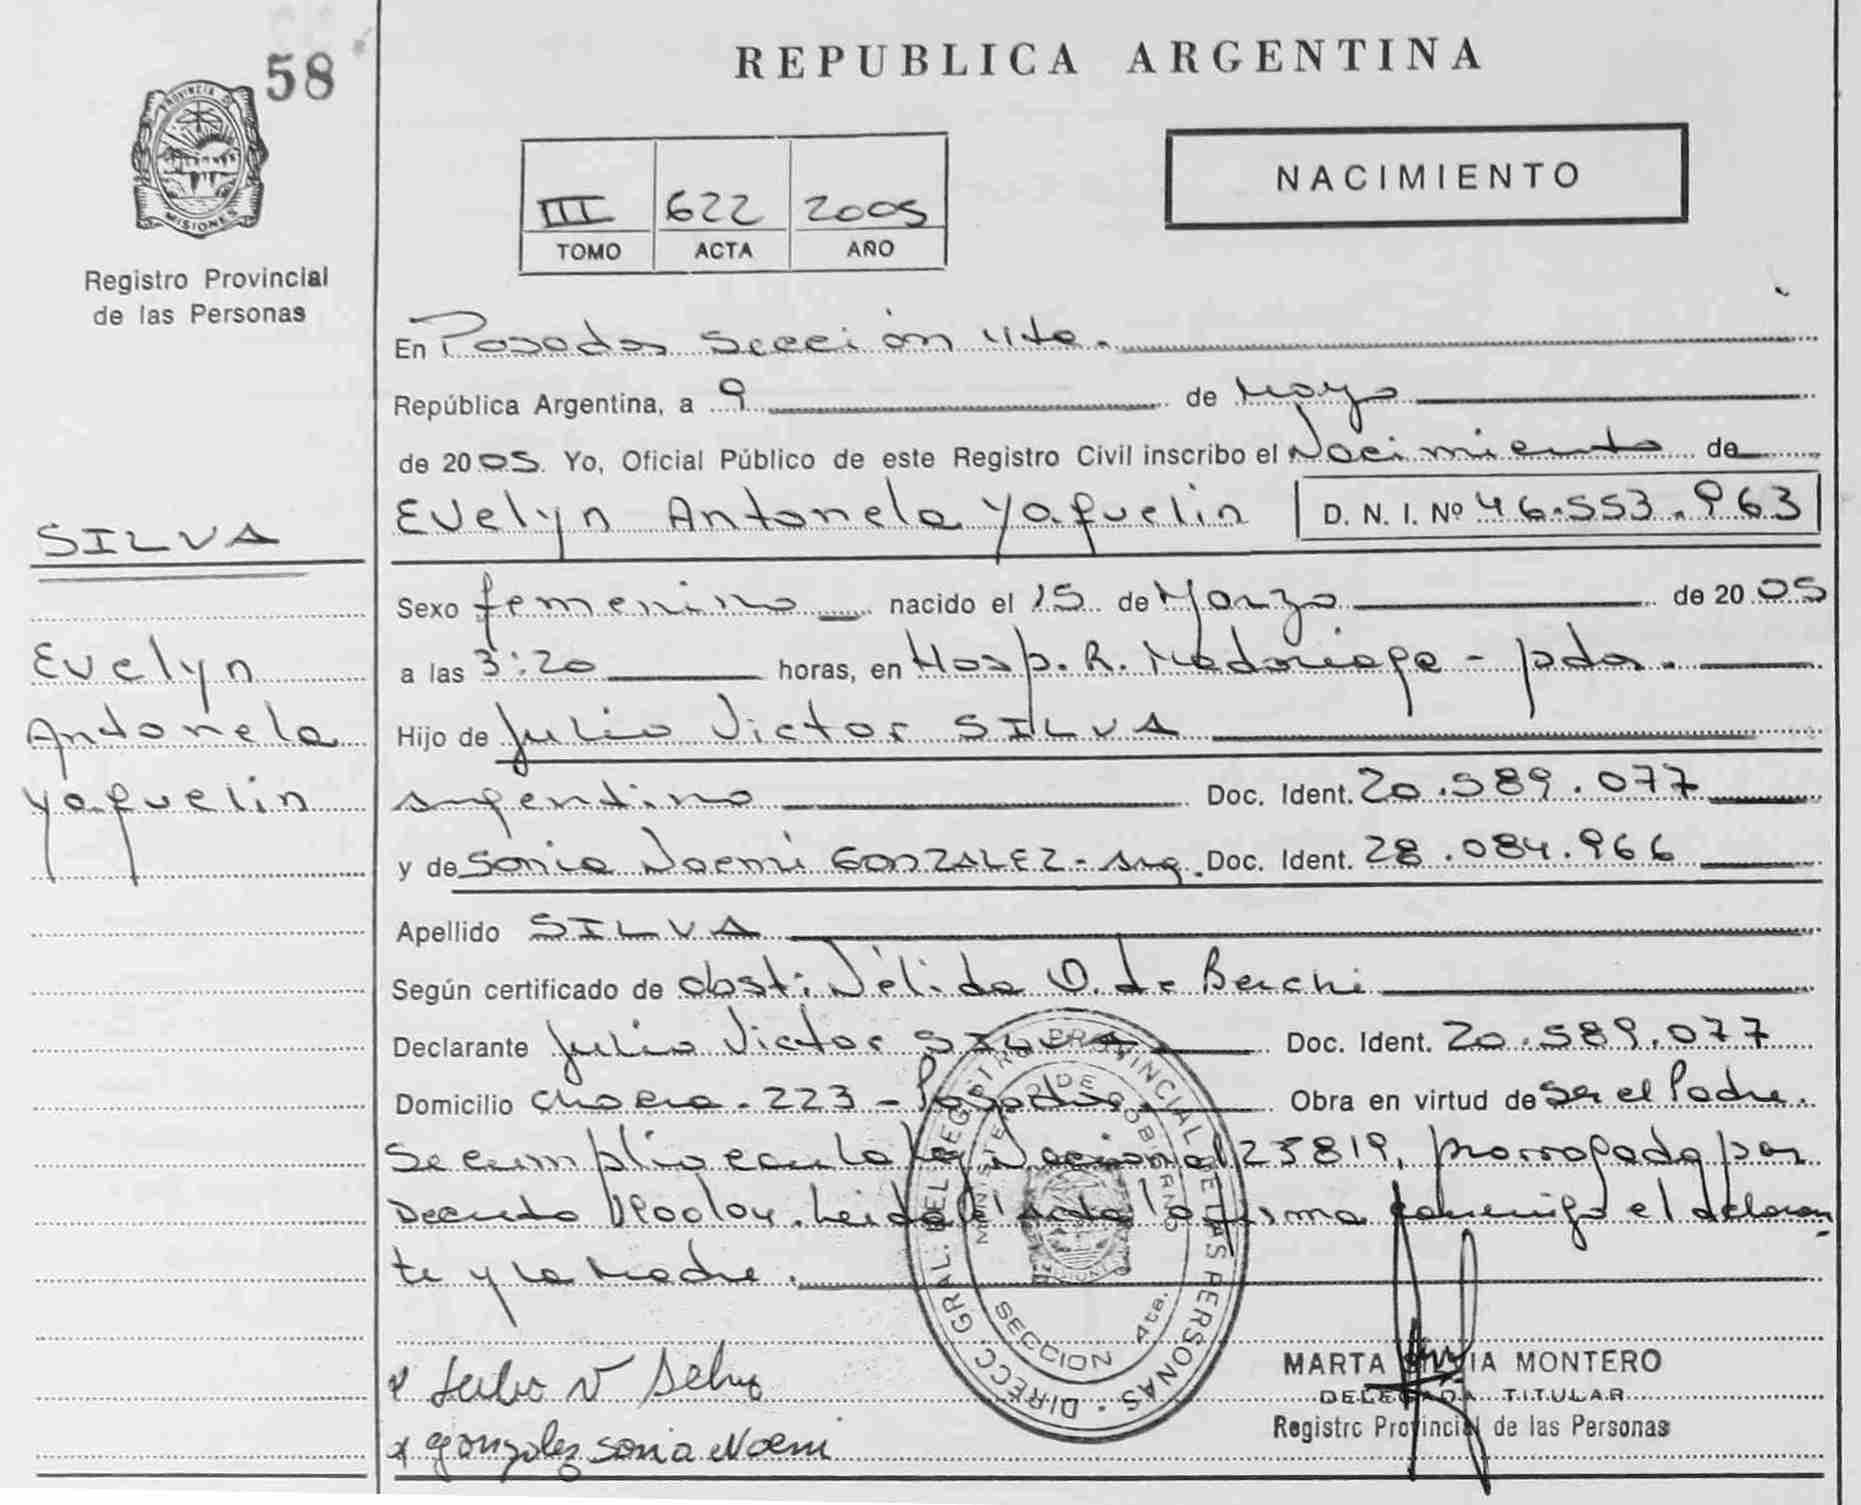 58
PROVINCIA D
MISIONES
Registro Provincial
de las Personas
REPUBLICA ARGENTINA
III 622 2005
TOMO ACTA AÑO
NACIMIENTO
En Posadas Sección 4ta.
República Argentina, a 9 de Mayo
de 2005. Yo, Oficial Público de este Registro Civil inscribo el Nacimiento de
Evelyn Antonela Yaquelin D. N. I. Nº 46.553.963
SILVA
Evelyn
Antonela
Yaquelin
Sexo femenino nacido el 15 de Marzo de 2005
a las 3:20 horas, en Hosp. R. Madariaga - pdas.
Hijo de Julio Victor SILVA
argentino Doc. Ident. 20.589.077
y de Sonia Noemi GONZALEZ - Arg. Doc. Ident. 28.084.966
Apellido SILVA
Según certificado de obst: Nélida O. de Berchi
Declarante Julio Victor SILVA Doc. Ident. 20.589.077
Domicilio 223 - Posadas Obra en virtud de ser el Padre.
Se cumplio con la ley Nacional 25819, prorrogada por
Decreto Leida el acta la firma conmigo el declaran
te y la Madre.
DIRECC. GRAL. DEL REGISTRO PROVINCIAL DE LAS PERSONAS
MINISTERIO DE GOBIERNO
SECCION 4ta.
Julio V Silva
Gonzalez Sonia Noemi
MARTA MONTERO
DELEGADA TITULAR
Registro Provincial de las Personas